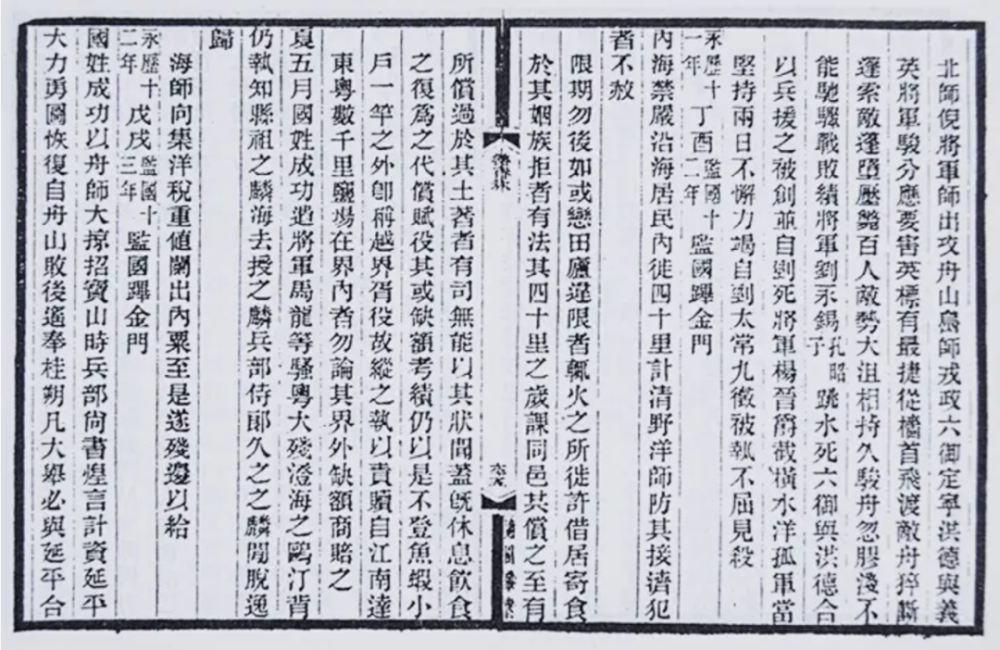 北師倪將軍師出攻舟山島師戎政六御定寧洪德與義
英將軍駿分應要害英標有最捷從檣首飛渡敵舟猝斷
蓬索敵蓬墮壓斃百人敵勢大沮相持久駿舟忽膠淺不
能馳驟戰敗績將軍劉永錫孔昭子跳水死六御與洪德合
以兵援之被創並自剄死將軍楊晉爵截橫水洋孤軍當
堅持兩日不懈力竭自剄太常九徵被執不屈見殺
永歷十一年丁酉監國十二年監國蹕金門
內海禁嚴沿海居民內徙四十里計清野洋師防其接濟犯
者不赦
限期勿後如或戀田廬違限者輒火之所徙許借居寄食
於其姻族拒者有法其四十里之歲課同邑共償之至有
所償過於其土著者有司無能以其狀聞蓋旣休息飲食
之復爲之代償賦役其或缺額考績仍以是不登魚蝦小
戶一竿之外卽稱越界胥役故縱之執以責贖自江南達
東粵數千里鹽場在界內者勿論其界外缺額商賂之
夏五月國姓成功遣將軍馬龍等騷粵大殘澄海之鷗汀背
仍執知縣祖之麟海去授之麟兵部侍郞久之之麟閒脫逸
歸
海師向集洋稅重値闌出內粟至是遂殘邊以給
永歷十二年戊戌監國十三年監國蹕金門
國姓成功以舟師大掠招寶山時兵部尙書煌言計資延平
大力勇圖恢復自舟山敗後遙奉桂朔凡大舉必與延平台